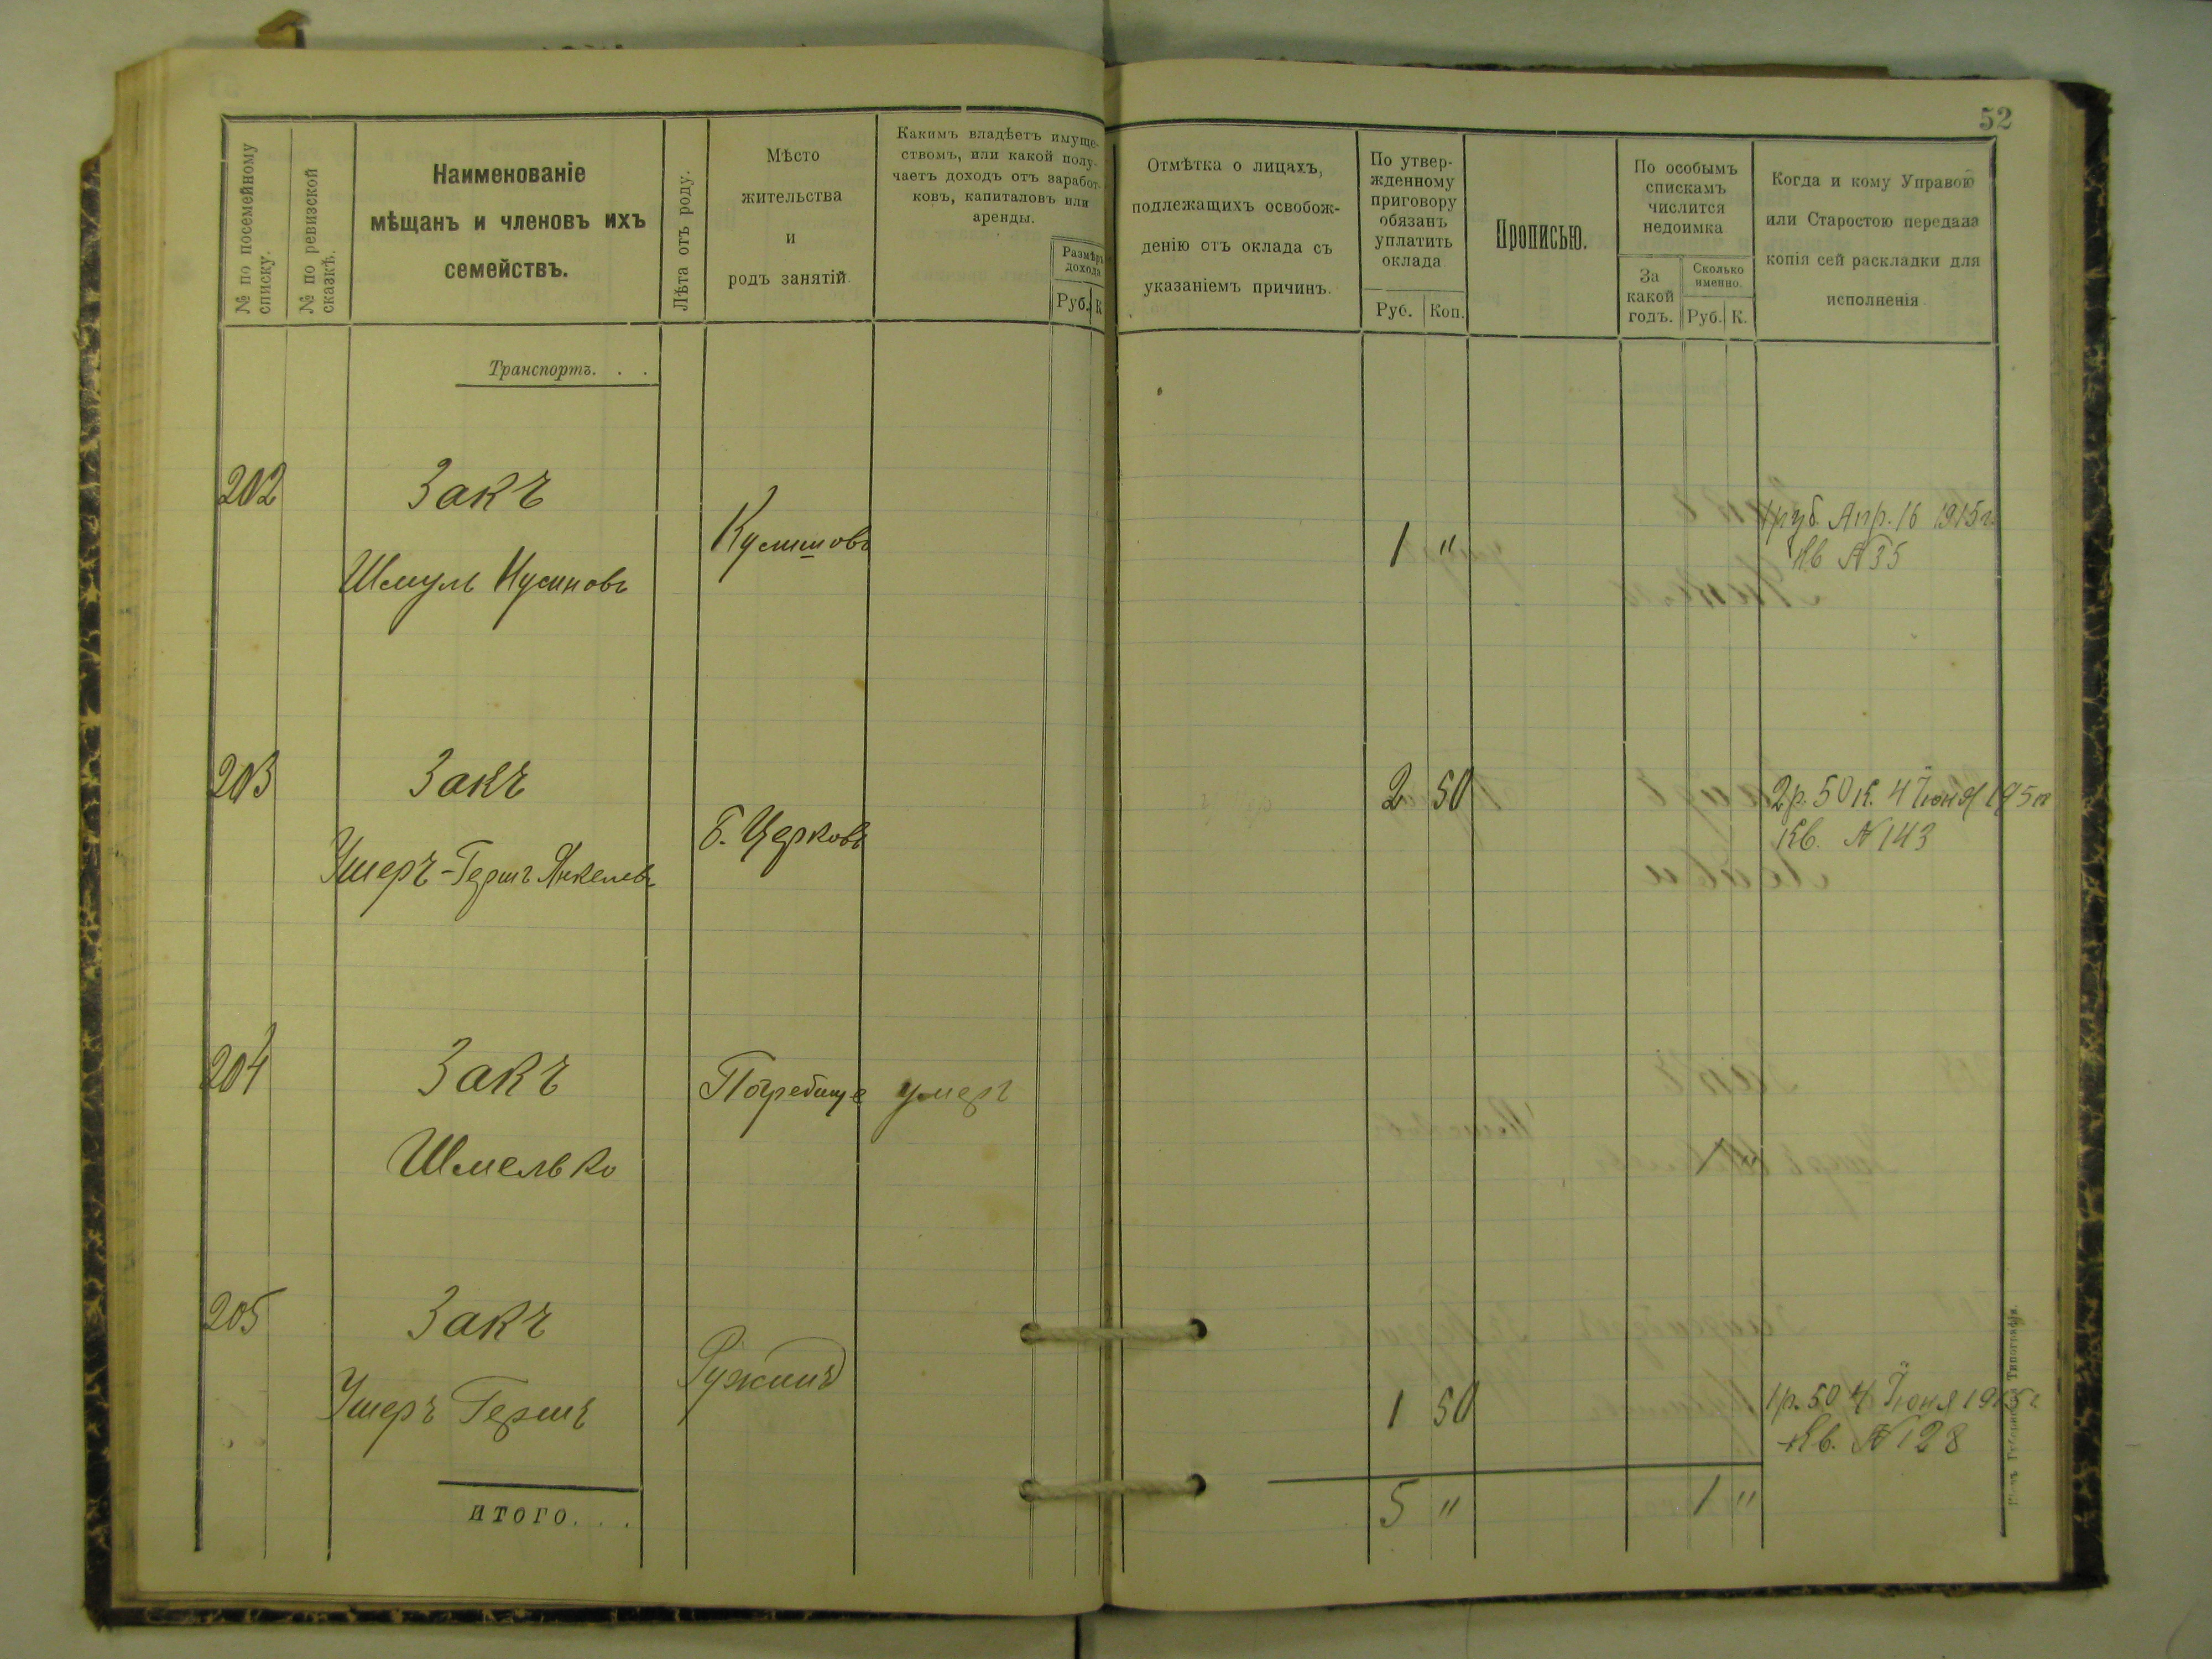 52
№ по посемейному
списку.
№ по ревизской
сказкѣ.
Наименованіе
мѣщанъ и членовъ ихъ
семействъ.
Лѣта отъ роду.
Мѣсто
жительства
и
родъ занятій.
Какимъ владѣетъ имуще-
ствомъ, или какой полу-
чаетъ доходъ отъ заработ-
ковъ, капиталовъ или
аренды.
Размѣръ
дохода
Руб. К
Отмѣтка о лицахъ,
подлежащихъ освобож-
денію отъ оклада съ
указаніемъ причинъ.
По утвер-
жденному
приговору
обязанъ
уплатить
оклада
Руб. Коп.
Прописью.
По особымъ
спискамъ
числится
недоимка
За
какой
годъ.
Сколько
именно.
Руб. К.
Когда и кому Управою
или Старостою передана
копія сей раскладки для
исполненія
Транспортъ. . .
202 Закъ
Шмуль Нусиновъ
1 "
1 руб. Апр. 16 1915 г.
Кв №35
203 Закъ
Ушеръ-Гершъ Янкелевъ
Б. Церковь
2 50
2 р. 50 К. 4 Іюня 1915 г
Кв. №143
204 Закъ
Шмелько
Погребище умеръ
205 Закъ
Ушеръ Гершъ
Ружинъ
1 50
1 р. 50 4 Іюня 1915 г
Кв. №128
ИТОГО. . .
5 " 1 "
Губернская Типографія.